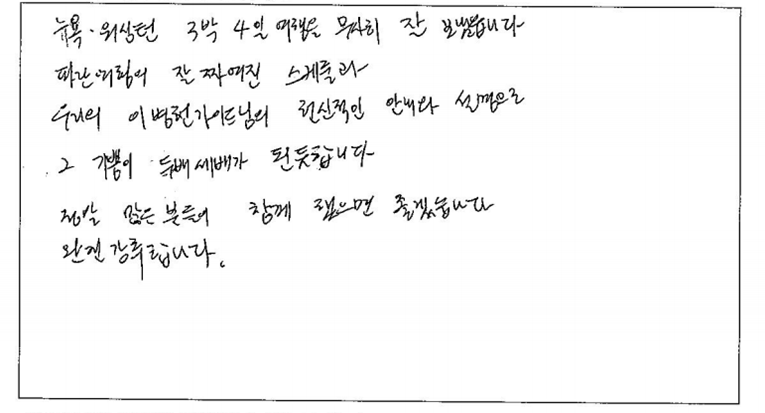 뉴욕·워싱턴 3박 4일 여행을 무사히 잘 보냈습니다
파란여행의 잘 짜여진 스케줄과
우리의 이병헌가이드님의 헌신적인 안내와 설명으로
그 기쁨이 두배 세배가 된듯합니다
정말 많은 분들이 함께 했으면 좋겠습니다
완전강추합니다.